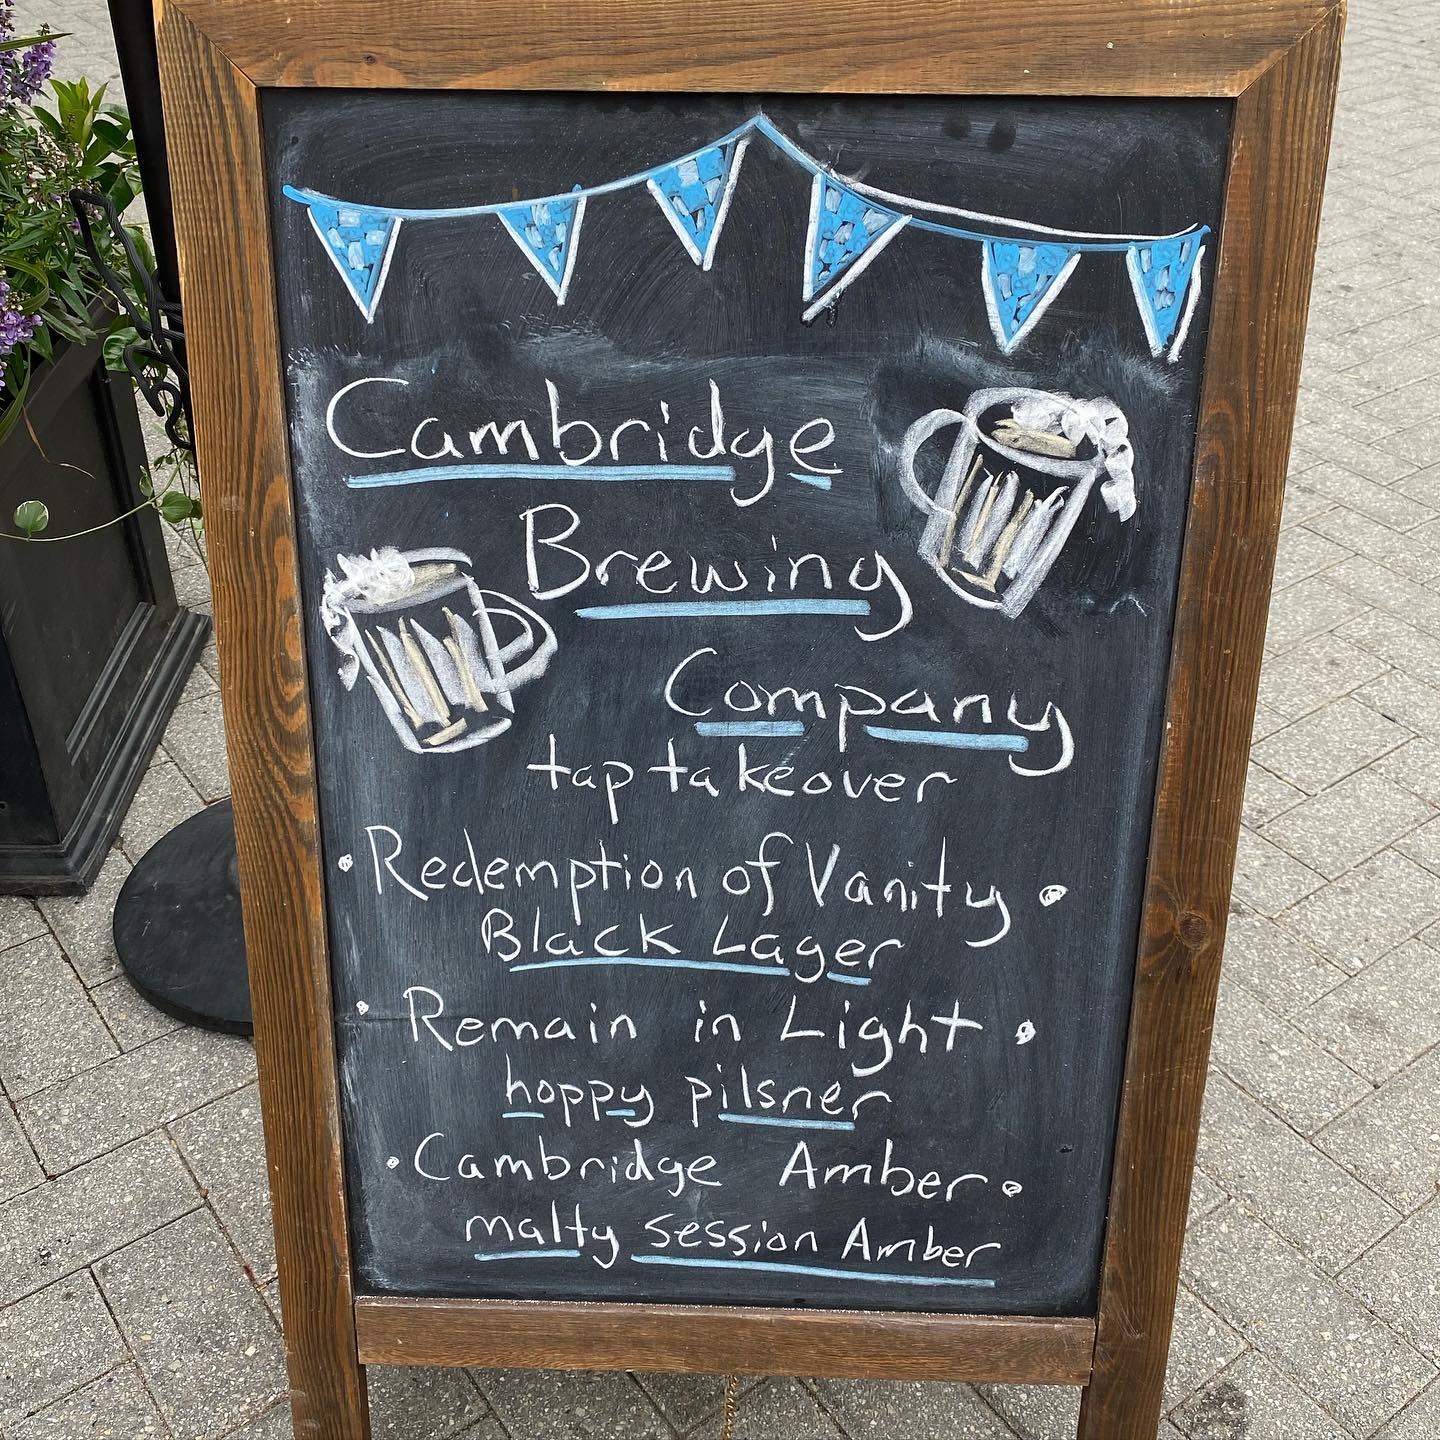 Cambridge
Brewing
Company
tap takeover
• Redemption of Vanity •
Black Lager
• Remain in Light •
hoppy pilsner
• Cambridge Amber •
malty session Amber